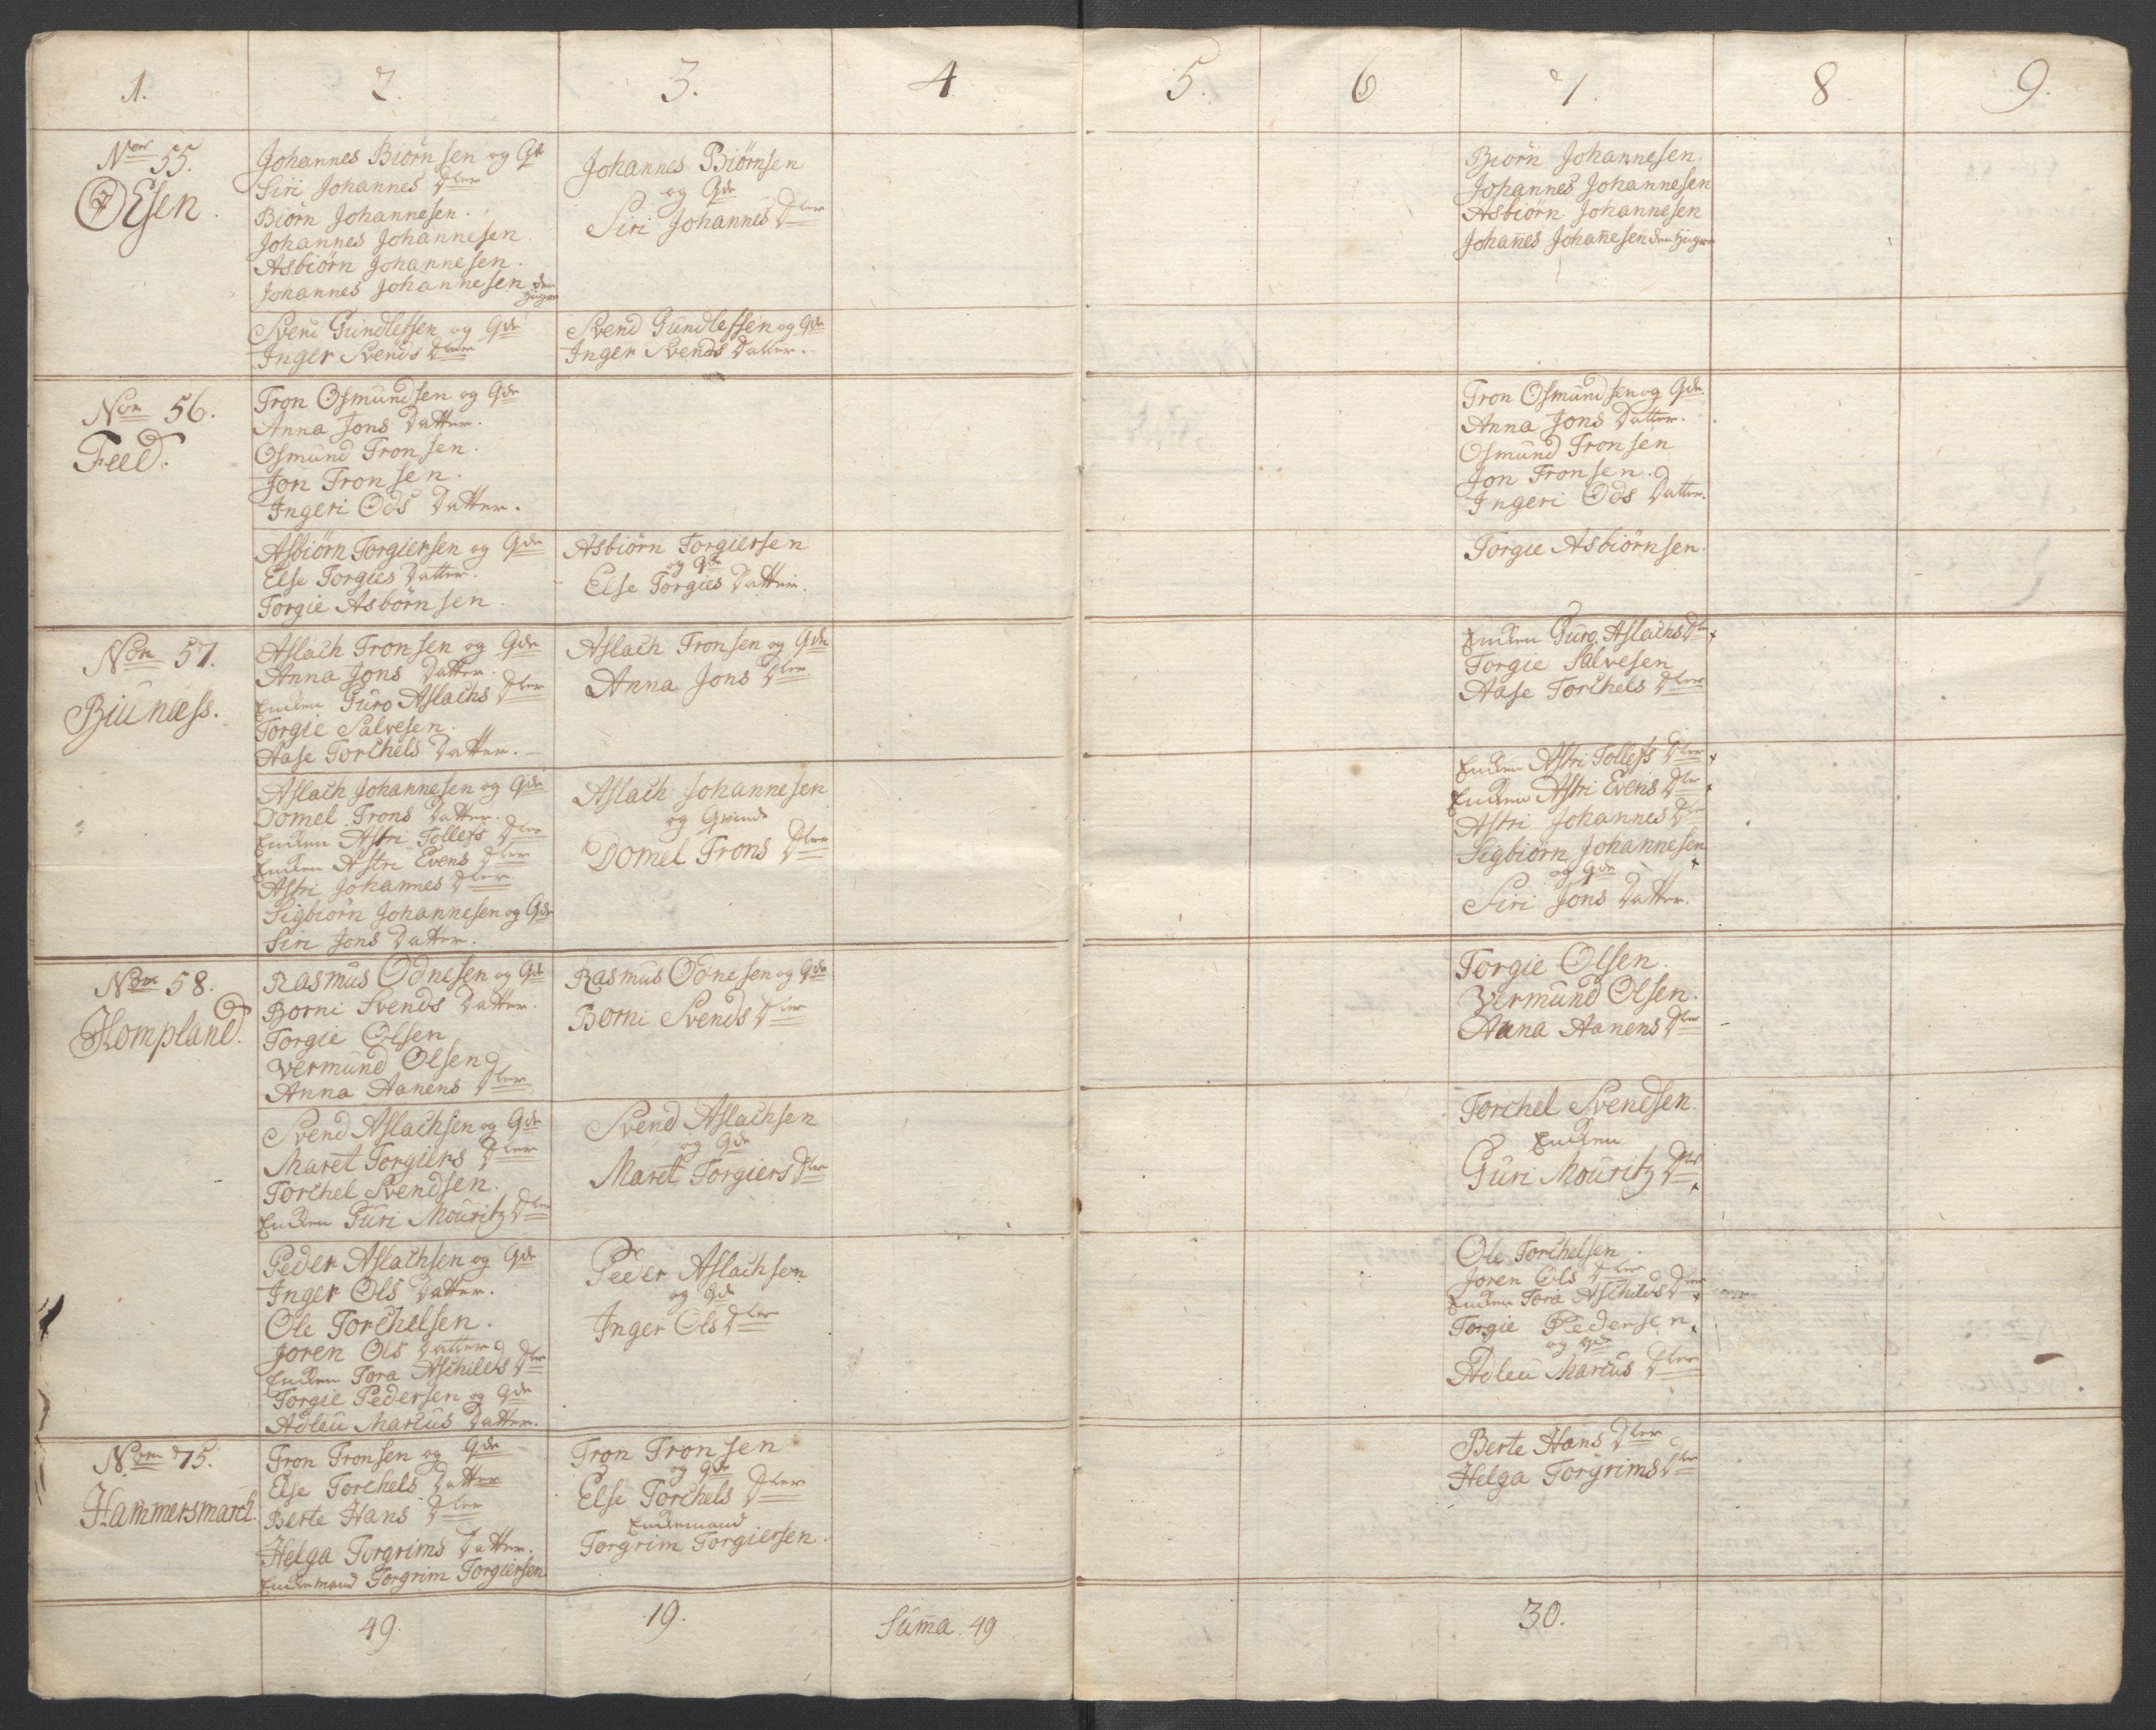 1. 2. 3. 4 5. 6 7. 8 9.
Nor 55.
Øÿsen.
Johannes Biörnsen og Qde
Siri Johannes Dter
Biörn Johannesen.
Johannes Johannesen
Asbiörn Johannesen.
Johannes Johannesen den
Yngre
Johannes Biörnsen
og Qde
Siri Johannes Dter
Biörn Johannesen.
Johannes Johannesen
Asbiörn Johannesen
Johañes Johañesen den Yngre
Svend Gundlefsen og Qde
Inger Svends Dter
Svend Gundlefsen og Qde
Inger Svends Datter.
Nor 56.
Feed.
Tron Osmundsen og Qde
Anna Jons Datter.
Osmund Tronsen.
Jon Tronsen.
Ingeri Ods Datter.
Tron Osmundsen og Qde.
Anna Jons Datter.
Osmund Tronsen
Jon Tronsen.
Ingeri Ods Datter.
Asbiörn Torgiersen og Qde
Else Torgies Datter.
Torgie Asbörnsen.
Asbiörn Torgiersen
og Qde
Else Torgies Datter.
Torgie Asbiörnsen.
Nor 57.
Biunæss.
Aslach Tronsen og Qde
Anna Jons Datter.
Enken Guro Aslachs Dter
Torgie Salvesen.
Aase Torchels Datter.
Aslach Tronsen og Qde
Anna Jons Dter
Enken Guro Aslachs Dtr +
Torgie Salvesen
Aase Torchels Dter
Aslach Johannesen og Qde
Domel Trons Datter.
Enken Astri Tollefs Dter
Enken Astri Evens Dter
Astri Johannes Dter
Sigbiörn Johannesen og Qde
Siri Jons Datter.
Aslach Johannesen
og Qvinde
Domel Trons Dter
Enken Astri Tollefs Dter +
Enken Astri Evens Dter +
Astri Johannes Dtr
Sigbiörn Johannesen
og Qde +
Siri Jons Datter.
Nor 58.
Hompland.
Rasmus Odnesen og Qde
Borni Svends Datter.
Torgie Olsen
Vermund Olsen
Anna Aanens Dter
Rasmus Odnesen og Qde
Borni Svends Dter
Torgie Olsen.
Vermund Olsen.
Anna Aanens Dter
Svend Aslachsen og Qde
Maret Torgiers Dter
Torchel Svendsen.
Enken Guri Mouritz Dter
Svend Aslachsen
og Qde
Maret Torgiers Dter
Torchel Svendsen.
Enken
Guri Mouritz Dter +
Peder Aslachsen og Qde
Inger Ols Datter.
Ole Torchelsen.
Joren Ols Datter
Enken Tora Aschilds Dter
Torgie Pedersen og Qde
Adleu Marcus Datter.
Peder Aslachsen
og Qde
Inger Ols Dter
Ole Torchelsen.
Joren Ols Dter
Enken Tora Aschilds Dter +
Torgie Pedersen
og Qde
Adleu Marcus Dter
Nor 75.
Hammersmarck.
Tron Tronsen og Qde
Else Torchels Datter
Berte Hans Dter
Helga Torgrims Datter.
Enkemand Torgrim Torgiersen
Tron Tronsen
og Qde
Else Torchels Dter
Enkemand
Torgrim Torgiersen.
Berte Hans Dter
Helga Torgrims Dter
49. 19. Suma 49 30.